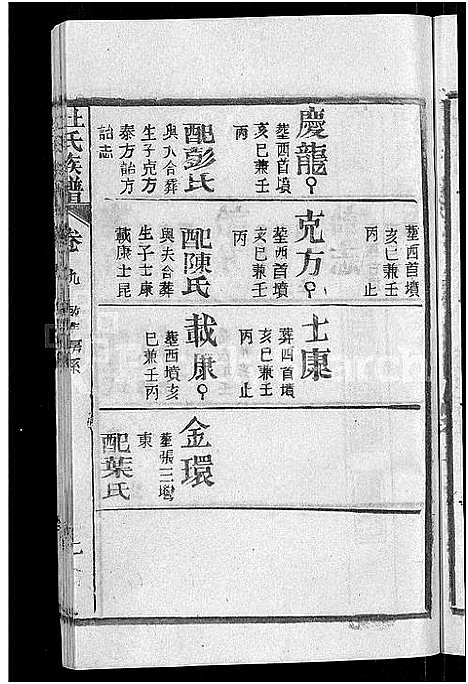 慶龍
葬西首墳
亥巳兼壬
丙
配彭氏
與夫合葬
生子克方
泰方詒方
詒志
葬西首墳
亥巳兼壬
丙
克方
葬西首墳
亥巳兼壬
丙
配陳氏
與夫合葬
生子士康
載康士昆
士康
葬西首墳
亥巳兼壬
丙
止
載康
葬西墳亥
巳兼壬丙
金環
葬張三塆
東
配葉氏
杜氏族譜
卷九